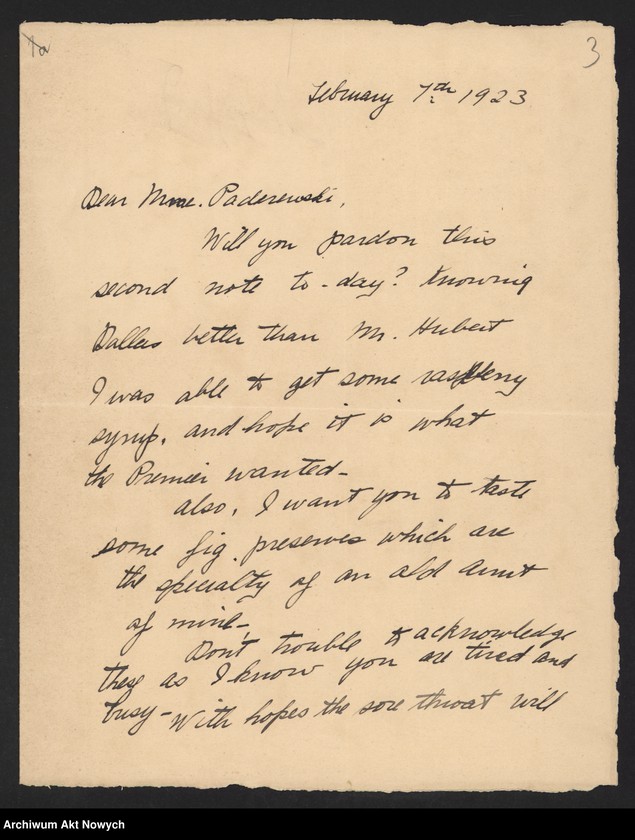 1a
3
February 7th 1923
Dear Mme. Paderewski,
Will you pardon this
second note to-day? Knowing
Dallas better than Mr. Hubert
I was able to get some raspberry
syrup, and hope it is what
the Premier wanted-
also, I want you to taste
some fig preserves which are
the specialty of an old aunt
of mine-
Don't trouble to acknowledge
these as I know you are tired and
busy- With hopes the sore throat will
Archiwum Akt Nowych